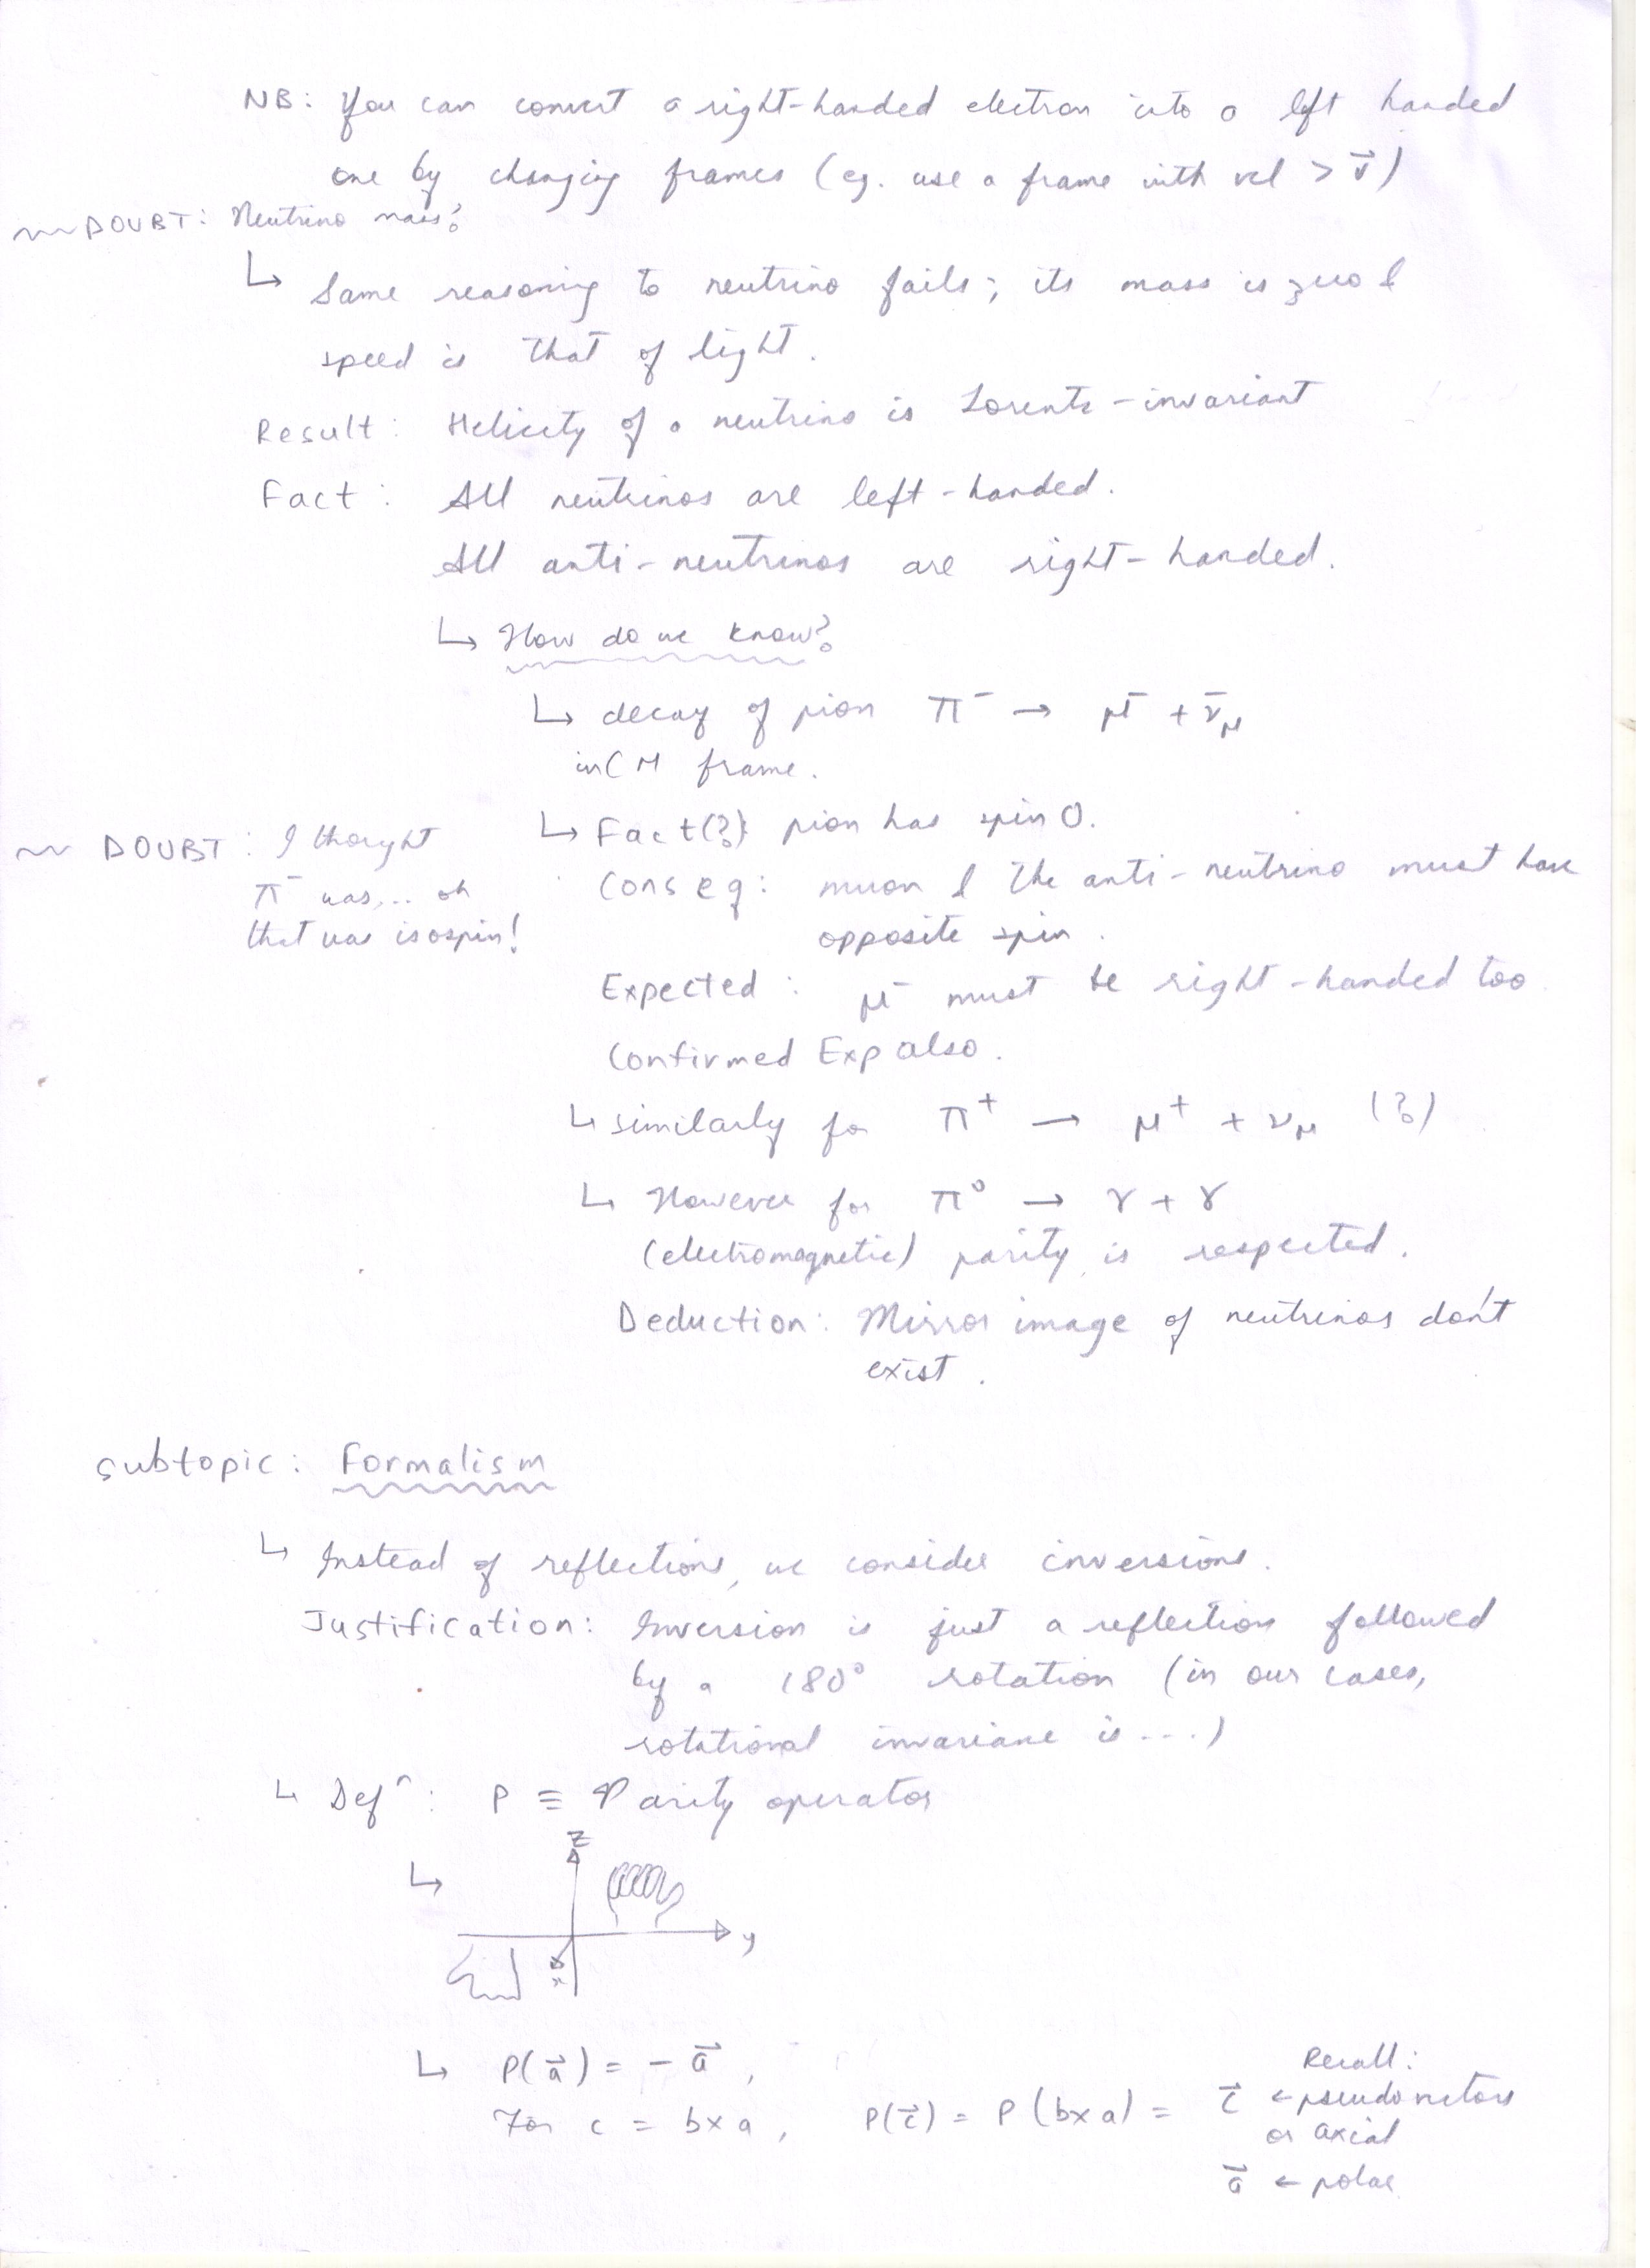 NB: You can convert a right-handed electron into a left handed
one by changing frames (eg. use a frame with vel > v⃗)
DOUBT: Neutrino mass?
↳ Same reasoning to neutrino fails; its mass is zero &
speed is that of light.
Result: Helicity of a neutrino is Lorentz-invariant
Fact: All neutrinos are left-handed.
All anti-neutrinos are right-handed.
↳ How do we know?
↳ decay of pion π⁻ → μ⁻ + ν̄_μ
in CM frame.
↳ Fact(?): pion has spin 0.
DOUBT: I thought
π⁻ was... oh
that was isospin!
Conseq: muon & the anti-neutrino must have
opposite spin.
Expected: μ⁻ must be right-handed too
Confirmed Exp also.
↳ similarly for π⁺ → μ⁺ + ν_μ (?)
↳ However for π⁰ → γ + γ
(electromagnetic) parity is respected.
Deduction: Mirror image of neutrinos don't
exist.
Subtopic: Formalism
↳ Instead of reflections, we consider inversions.
Justification: Inversion is just a reflection followed
by a 180° rotation (in our cases,
rotational invariance is ...)
↳ Defⁿ: P ≡ Parity operator
z
↳
y
x
↳ P(a⃗) = - a⃗,
For c = b×a, P(c⃗) = P(b×a) = c⃗ ← pseudovectors
Recall:
or axial
a⃗ ← polar